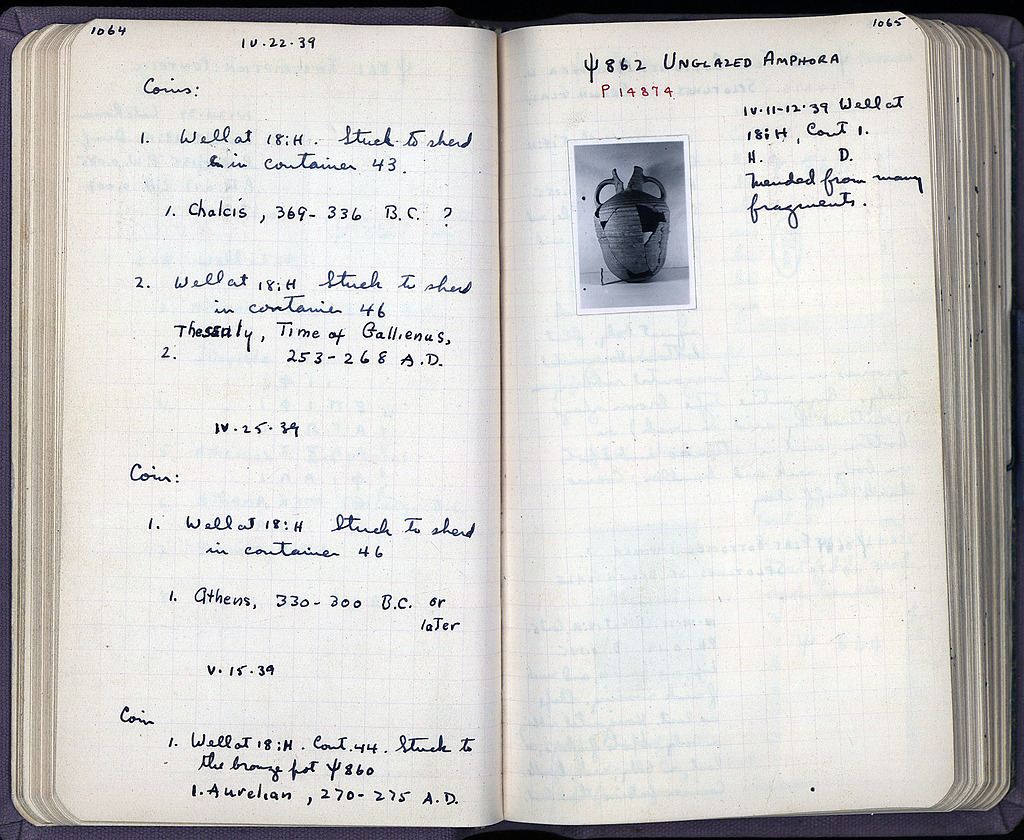 1064
IV.22.39
Coins:
1. Well at 18:H. Stuck to sherd
in container 43.
1. Chalcis, 369-336 B.C. ?
2. Well at 18:H Stuck to sherd
in container 46
Thessaly, Time of Gallienus,
2. 253-268 A.D.
IV.25.39
Coin:
1. Well at 18:H Stuck to sherd
in container 46
1. Athens, 330-300 B.C. or
later
V.15.39
Coin
1. Well at 18:H. Cont. 44. Stuck to
the bronze pot Ψ860
1. Aurelian, 270-275 A.D.
1065
Ψ862 UNGLAZED AMPHORA
P 14874
IV.11-12.39 Well at
18:H, Cont 1.
H. D.
Mended from many
fragments.